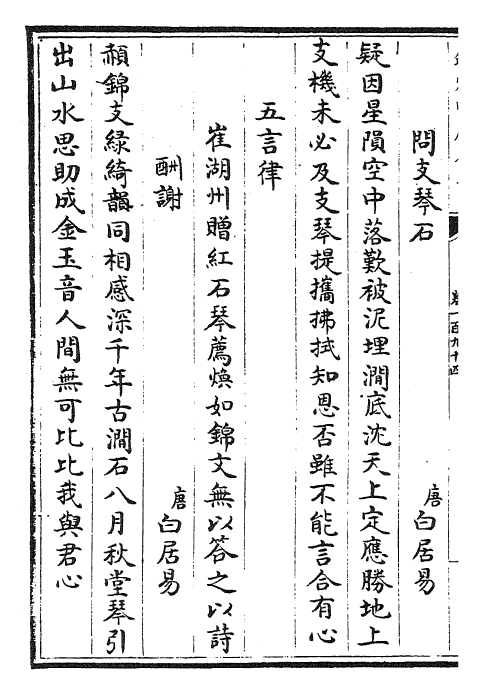 卷一百九十四
問支琴石
唐白居易
疑因星隕空中落歎被泥埋澗底沈天上定應勝地上
支機未必及支琴提攜拂拭知恩否雖不能言合有心
五言律
崔湖州贈紅石琴薦煥如錦文無以答之以詩
酬謝
唐白居易
赬錦支綠綺韻同相感深千年古澗石八月秋堂琴引
出山水思助成金玉音人間無可比比我與君心